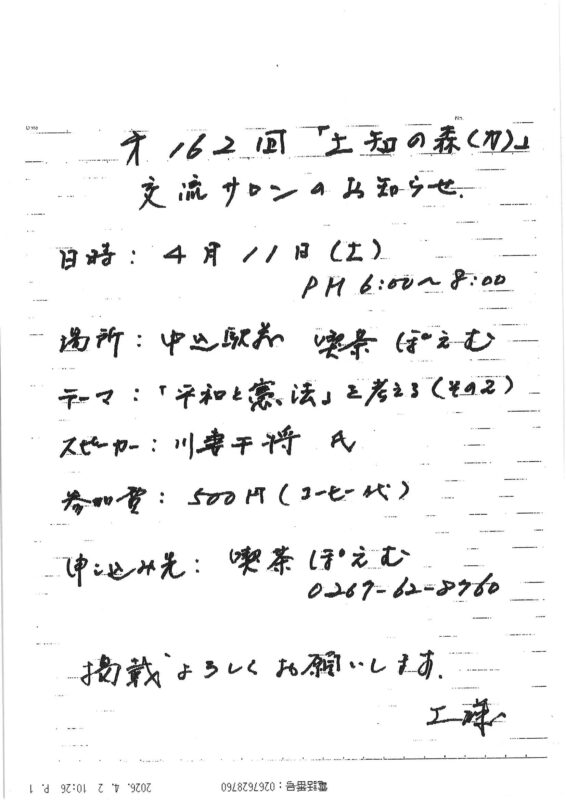 Date
No.
オ162回「土知の森(カ)」
交流サロンのお知らせ.
日時: 4月11日(土)
PM 6:00〜8:00
場所: 中込駅前 喫茶 ぽえむ
テーマ:「平和と憲法」を考える(その2)
スピーカー: 川妻干将 氏
参加費: 500円(コーヒー代)
申し込み先: 喫茶 ぽえむ
0267-62-8760
掲載よろしくお願いします.
工様
2026. 4. 2 10:26 P. 1
電話番号:0267628760